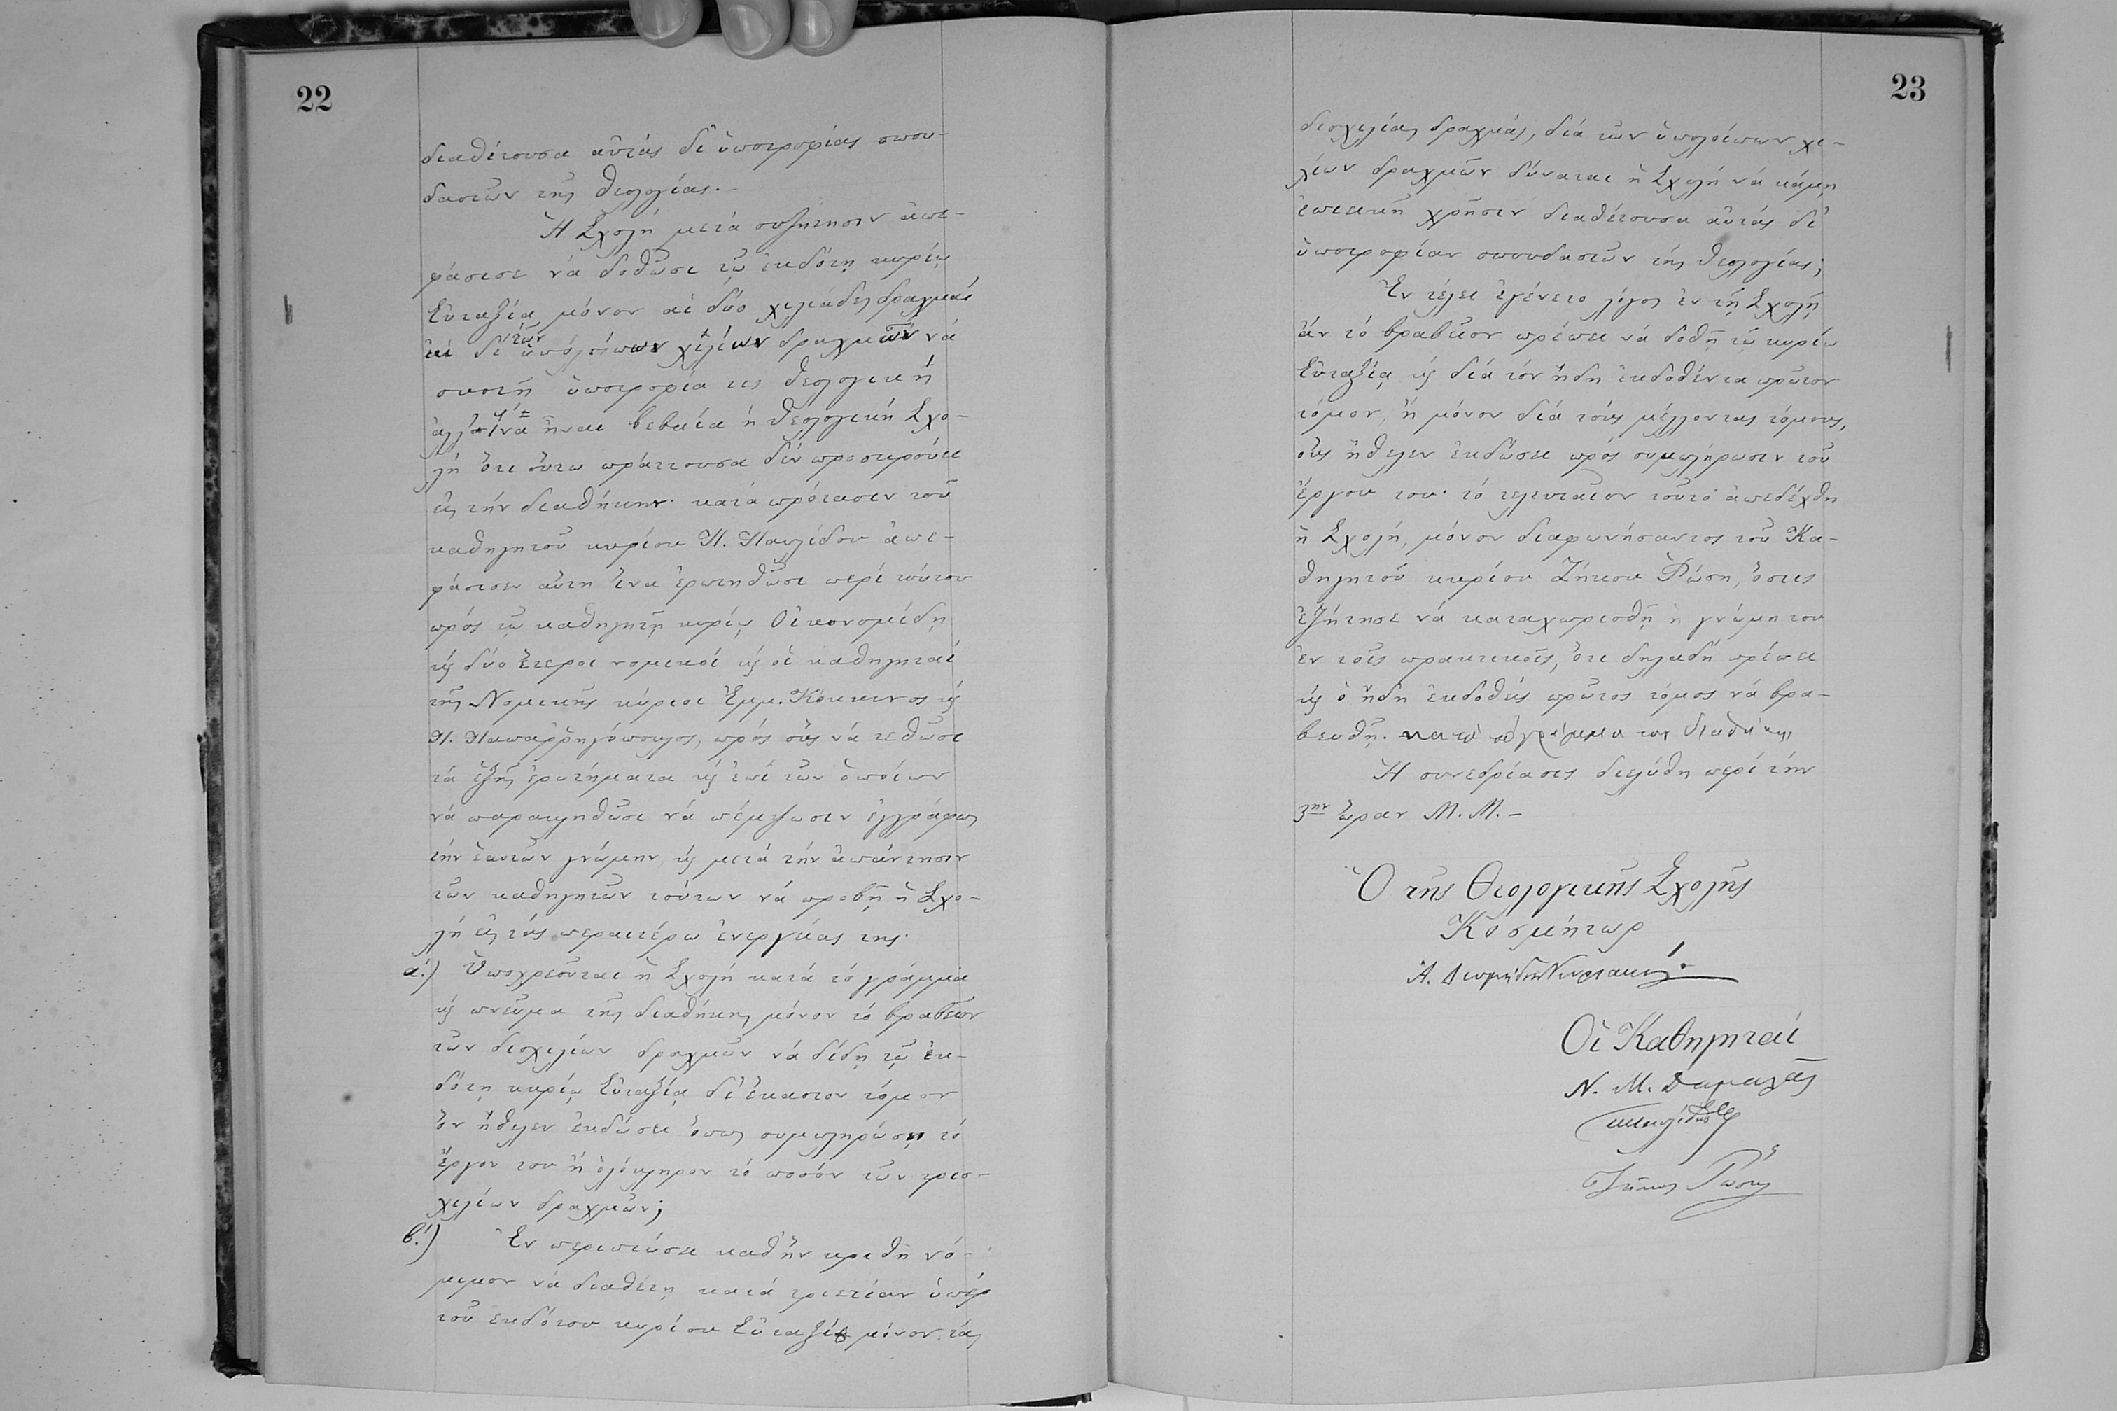 22
διαθέτουσα αὐτὰς δι' ὑποτροφίας σπου-
δαστῶν τῆς θεολογίας.-
Ἡ Σχολὴ μετὰ συζήτησιν ἀπε-
φάσισε νὰ δοθῶσι τῷ ἐκδότῃ κυρίῳ
Εὐταξίᾳ μόνον αἱ δύο χιλιάδες δραχμαὶ
ἐκ δὲ τῶν ὑπολοίπων χιλίων δραχμῶν νὰ
συστῇ ὑποτροφία τις θεολογική
ἀλλ' ἵνα ᾖναι βεβαία ἡ θεολογικὴ Σχο-
λὴ ὅτι οὕτω πράττουσα δὲν προσκρούει
εἰς τὴν διαθήκην· κατὰ πρότασιν τοῦ
καθηγητοῦ κυρίου Π. Παυλίδου ἀπε-
φάσισεν αὕτη ἵνα ἐρωτηθῶσι περὶ τούτου
πρὸς τῷ καθηγητῇ κυρίῳ Οἰκονομίδῃ
καὶ δύο ἕτεροι νομικοὶ καὶ οἱ καθηγηταὶ
τῆς Νομικῆς κύριοι Ἐμμ. Κόκκινος καὶ
Π. Παπαρρηγόπουλος, πρὸς οὓς νὰ τεθῶσι
τὰ ἑξῆς ἐρωτήματα καὶ ἐπὶ τῶν ὁποίων
νὰ παρακληθῶσι νὰ πέμψωσιν ἐγγράφως
τὴν ἑαυτῶν γνώμην, καὶ μετὰ τὴν ἀπάντησιν
τῶν καθηγητῶν τούτων νὰ προβῇ ἡ Σχο-
λὴ εἰς τὰς περαιτέρω ἐνεργείας της.
α΄.) Ὑποχρεοῦται ἡ Σχολὴ κατὰ τὸ γράμμα
καὶ πνεῦμα τῆς διαθήκης μόνον τὸ βραβεῖον
τῶν δισχιλίων δραχμῶν νὰ δίδῃ τῷ ἐκ-
δότῃ κυρίῳ Εὐταξίᾳ δι' ἕκαστον τόμον
ὃν ἤθελεν ἐκδώσει ὅπως συμπληρώσῃ τὸ
ἔργον του ἢ ὁλόκληρον τὸ ποσὸν τῶν τρισ-
χιλίων δραχμῶν;
β΄.) Ἐν περιπτώσει καθ' ἣν κριθῇ νό-
μιμον νὰ διαθέτῃ κατὰ τριετίαν ὑπὲρ
τοῦ ἐκδότου κυρίου Εὐταξία μόνον τὰς
23
δισχιλίας δραχμάς, διὰ τῶν ὑπολοίπων χι-
λίων δραχμῶν δύναται ἡ Σχολὴ νὰ κάμῃ
ἐπιεικῆ χρῆσιν διαθέτουσα αὐτὰς δι'
ὑποτροφίαν σπουδαστῶν τῆς θεολογίας;
Ἐν τέλει ἐγένετο λόγος ἐν τῇ Σχολῇ
ἂν τὸ βραβεῖον πρέπει νὰ δοθῇ τῷ κυρίῳ
Εὐταξίᾳ καὶ διὰ τὸν ἤδη ἐκδοθέντα πρῶτον
τόμον, ἢ μόνον διὰ τοὺς μέλλοντας τόμους,
οὓς ἤθελεν ἐκδώσει πρὸς συμπλήρωσιν τοῦ
ἔργου του· τὸ τελευταῖον τοῦτο ἀπεδέχθη
ἡ Σχολή, μόνον διαφωνήσαντος τοῦ Κα-
θηγητοῦ κυρίου Ζήκου Ῥώση, ὅστις
ἐζήτησε νὰ καταχωρισθῇ ἡ γνώμη του
ἐν τοῖς πρακτικοῖς, ὅτι δηλαδὴ πρέπει
καὶ ὁ ἤδη ἐκδοθεὶς πρῶτος τόμος νὰ βρα-
βευθῇ. κατὰ τὸ γράμμα τῆς διαθήκης
Ἡ συνεδρίασις διελύθη περὶ τὴν
3ην ὥραν Μ. Μ.-
Ὁ τῆς Θεολογικῆς Σχολῆς
Κοσμήτωρ
Ἀ. Διομήδης Κυριακός.
Οἱ Καθηγηταὶ
Ν. Μ. Δαμαλᾶς
Παυλίδης
Ζῆκος Ῥώσης